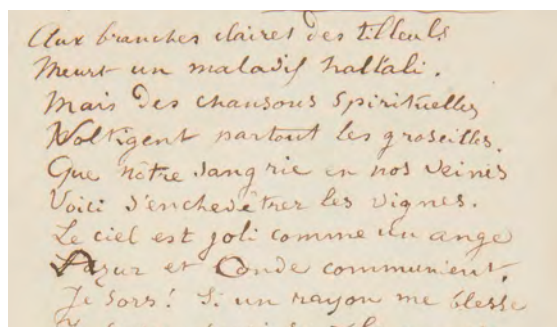 Aux branches claires des tilleuls
Meurt un maladif hallali.
Mais des chansons spirituelles
Voltigent partout les groseilles.
Que nôtre sang rie en nos veines
Voici s'enchevêtrer les vignes.
Le ciel est joli comme un ange
Azur et Onde communient.
Je sors! Si un rayon me blesse